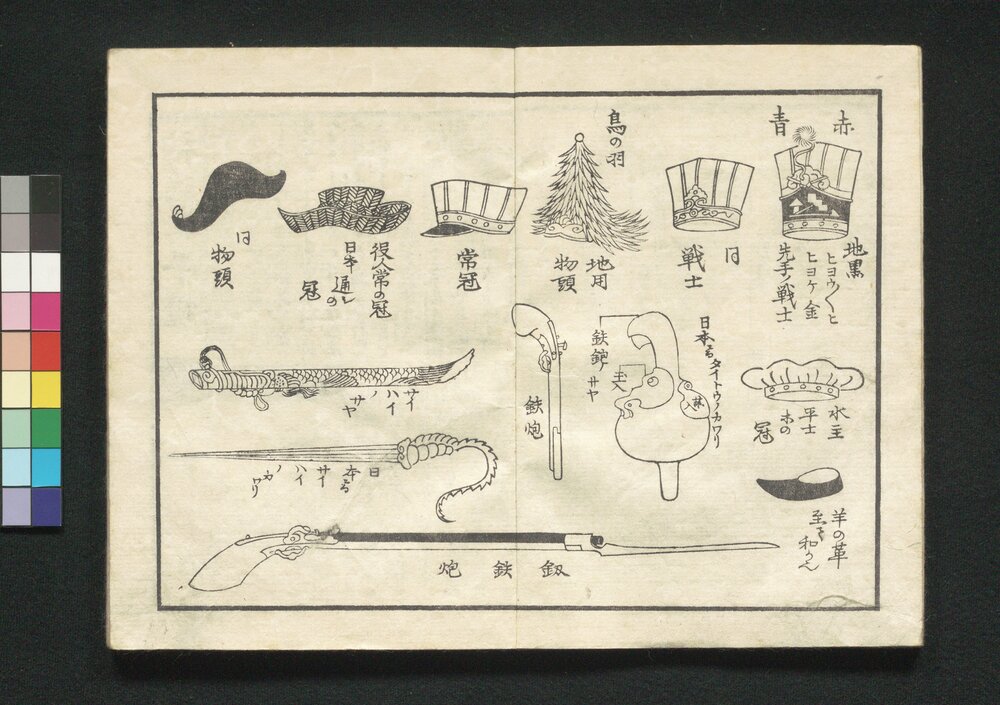 赤
青
地黒
ヒヨウ〱ヒ
ヒヨケ金
先手ノ戦士
同
戦士
鳥の羽
地用
物頭
常冠
役人常の冠
日本
通しの
冠
同
物頭
水主
平士
冠
羊の革
日本
タイトウノカワリ
鉄砲
玉入
サヤ
鉄炮
サイ
ハイ
ノ
サヤ
日
本
サイ
ハイ
ノ
カワリ
釼鉄炮